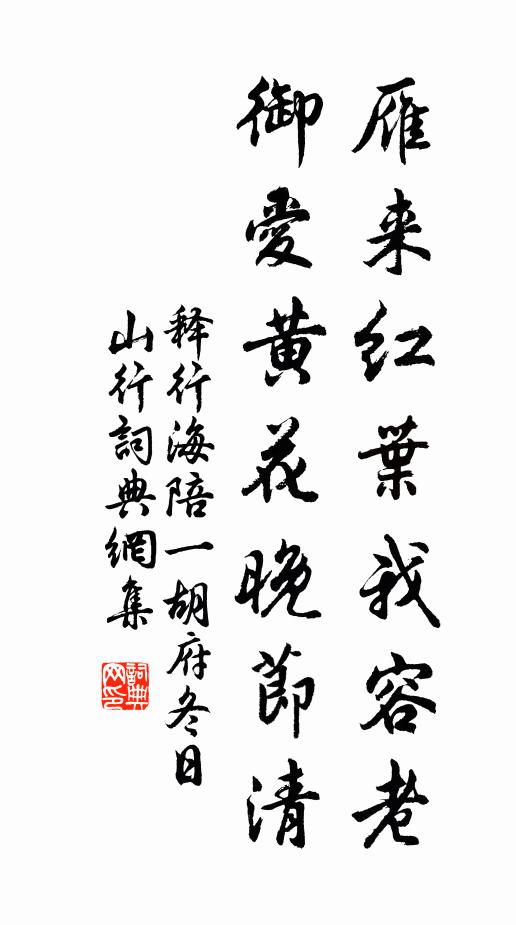 雁来红葉我容老
御愛黄花晚節清
释行海陪一胡府冬日
山行詞典網集
詞典
网印